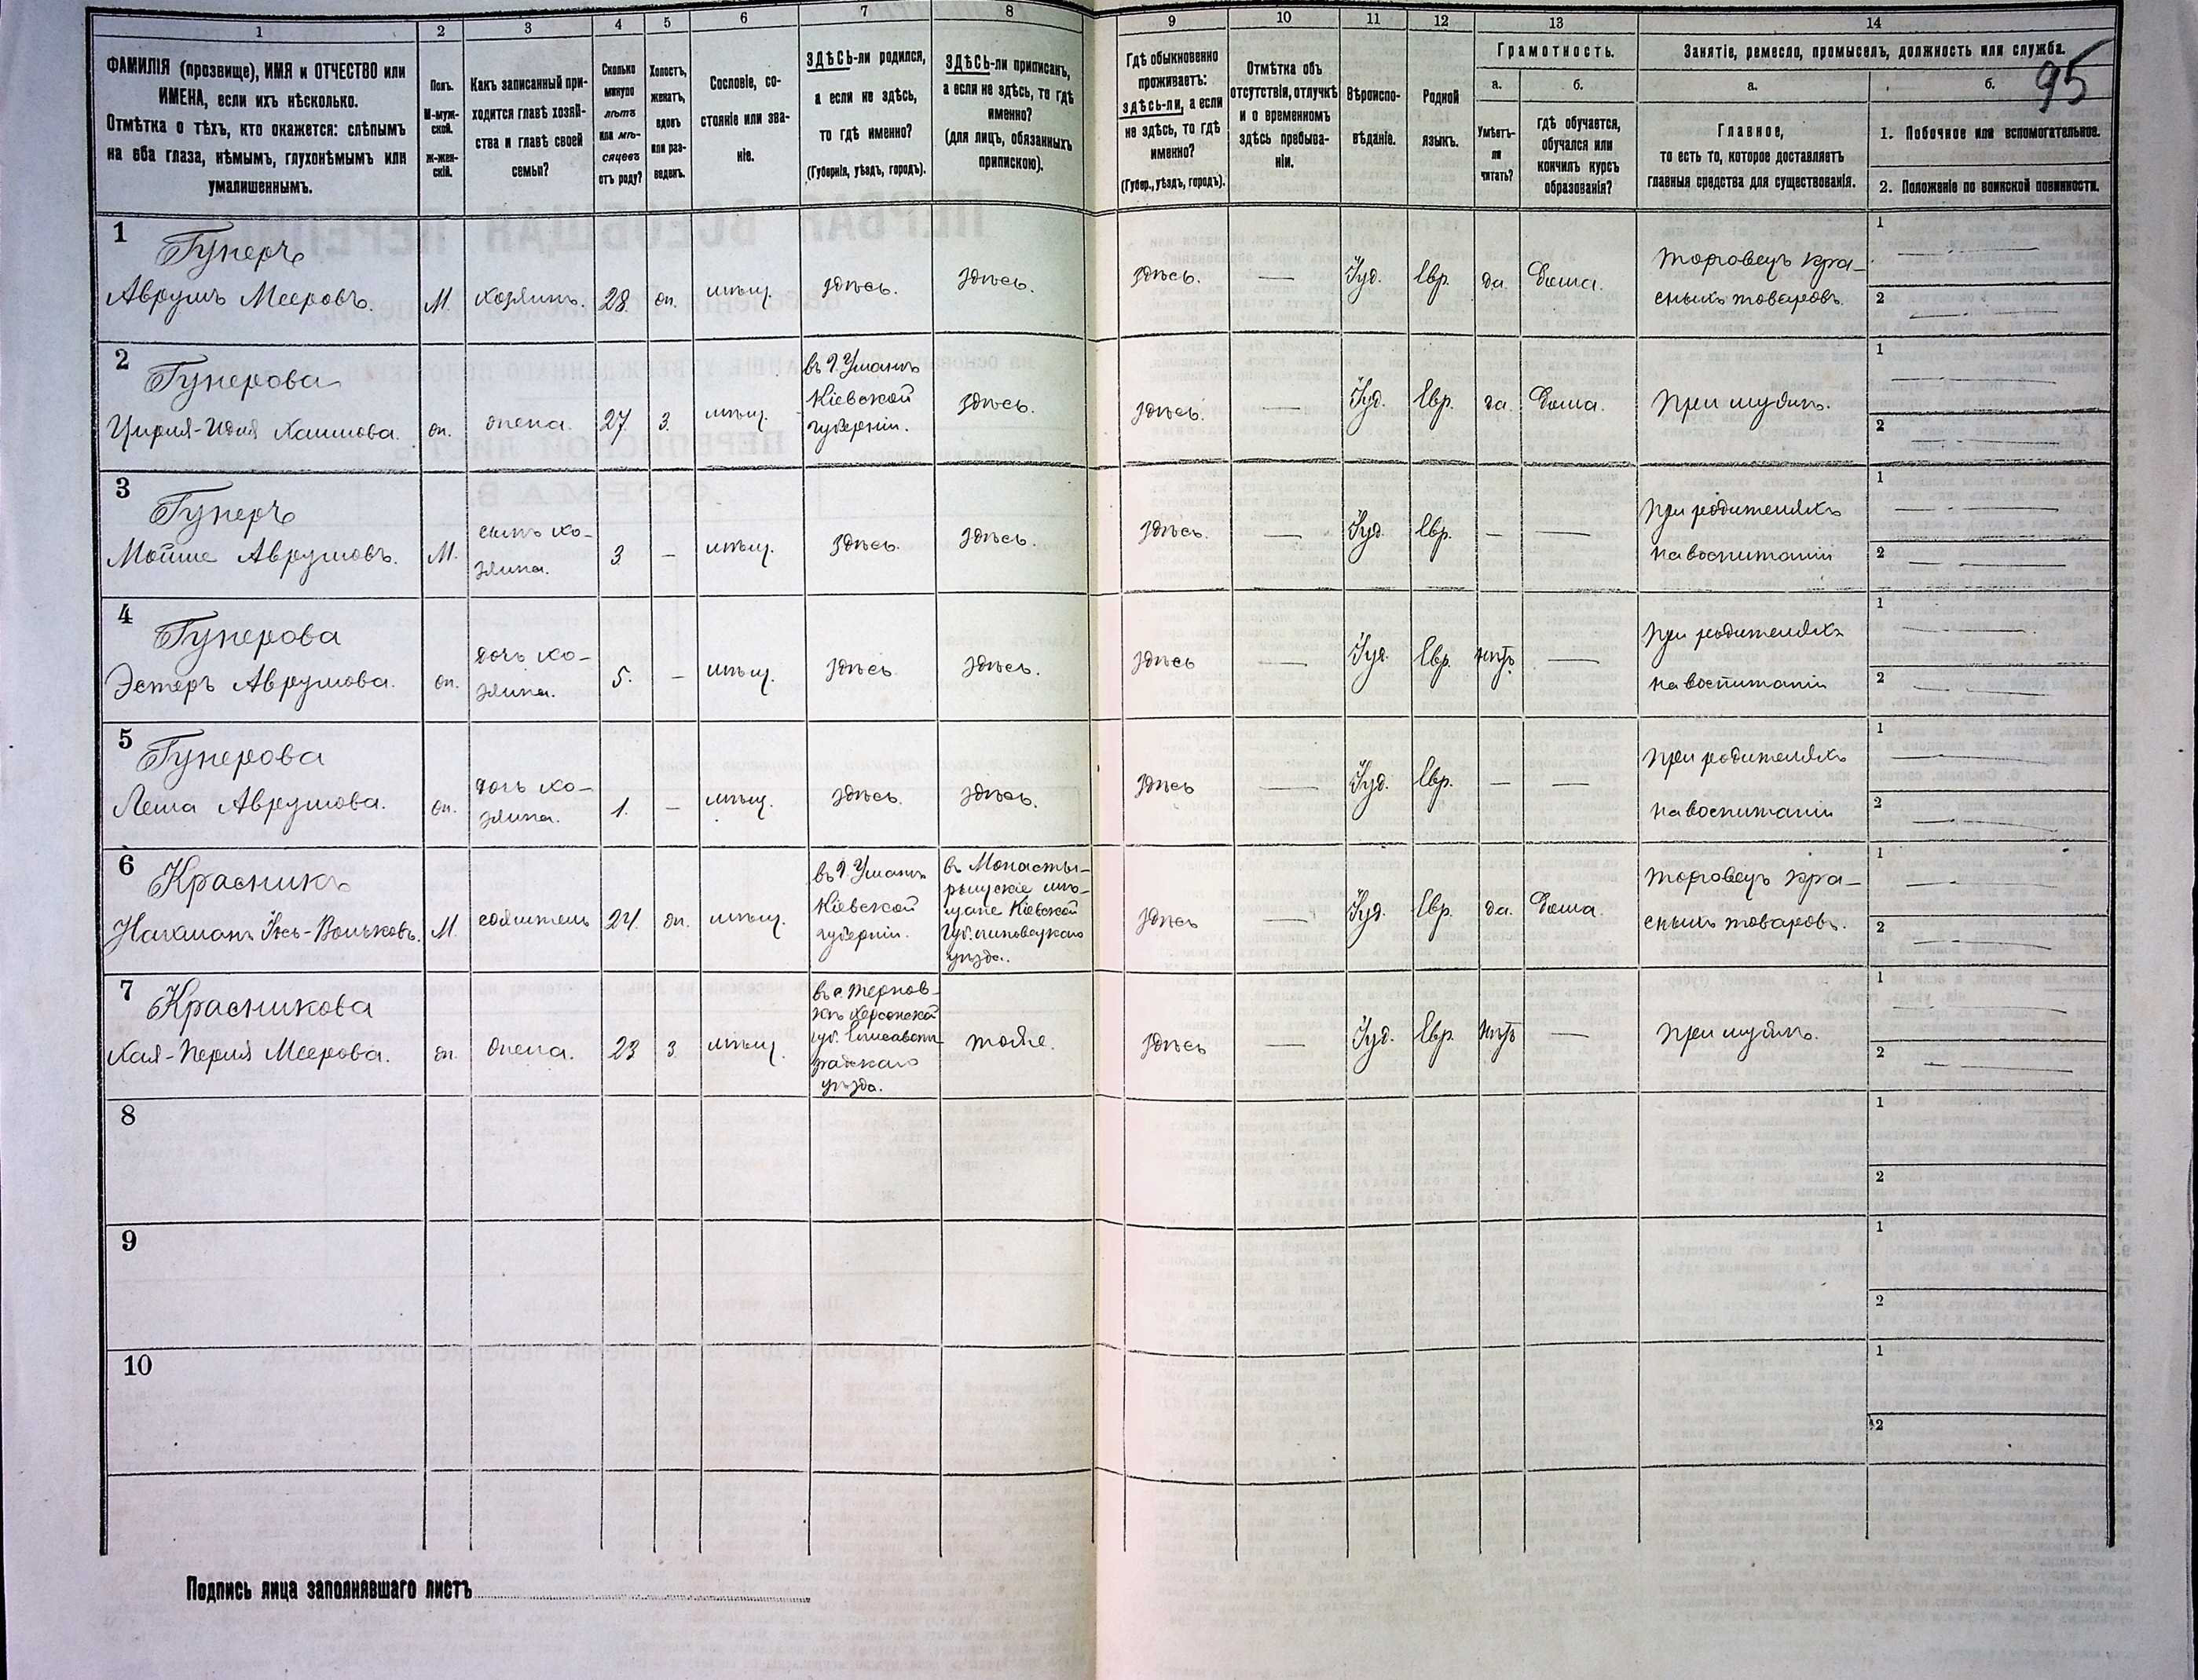 1
2
3
4
5
6
7
8
9
10
11
12
13
14
ФАМИЛІЯ (прозвище), ИМЯ и ОТЧЕСТВО или
ИМЕНА, если ихъ нѣсколько.
Отмѣтка о тѣхъ, кто окажется: слѣпымъ
на оба глаза, нѣмымъ, глухонѣмымъ или
умалишеннымъ.
Полъ.
М-муж-
ской.
Ж-жен-
скій.
Какъ записанный при-
ходится главѣ хозяй-
ства и главѣ своей
семьи?
Сколько
минуло
лѣтъ
или мѣ-
сяцевъ
отъ роду?
Холостъ,
женатъ,
вдовъ
или раз-
веденъ.
Сословіе, со-
стояніе или зва-
ніе.
ЗДѢСЬ-ли родился,
а если не здѣсь,
то гдѣ именно?
(Губернія, уѣздъ, городъ).
ЗДѢСЬ-ли приписанъ,
а если не здѣсь, то гдѣ
именно?
(для лицъ, обязанныхъ
припискою).
Гдѣ обыкновенно
проживаетъ:
здѣсь-ли, а если
не здѣсь, то гдѣ
именно?
(Губер., уѣздъ, городъ).
Отмѣтка объ
отсутствіи, отлучкѣ
и о временномъ
здѣсь пребыва-
ніи.
Вѣроиспо-
вѣданіе.
Родной
языкъ.
Грамотность.
а.
Умѣетъ-
ли
читать?
б.
гдѣ обучается,
обучался или
кончилъ курсъ
образованія?
Занятіе, ремесло, промыселъ, должность или служба.
95
а.
Главное,
то есть то, которое доставляетъ
главныя средства для существованія.
б.
1. Побочное или вспомогательное.
2. Положеніе по воинской повинности.
1
Гунеръ
Аврумъ Мееровъ.
М.
хозяинъ.
28.
ж.
мѣщ.
здѣсь.
здѣсь.
здѣсь.
—
Іуд.
Евр.
да.
дома.
торговецъ кра-
сныхъ товаровъ.
1
2
2
Гунерова
Хаимова.
ж.
жена.
27.
з.
мѣщ.
въ г. Умань
Кіевской
губерніи.
здѣсь.
здѣсь.
—
Іуд.
Евр.
да.
дома.
при мужѣ.
1
2
3
Гунеръ
Мойше Аврумовъ.
М.
сынъ хо-
зяина.
3
—
мѣщ.
здѣсь.
здѣсь.
здѣсь.
—
Іуд.
Евр.
—
—
при родителяхъ
на воспитаніи
1
2
4
Гунерова
Эстеръ Аврумова.
ж.
дочь хо-
зяина.
5.
—
мѣщ.
здѣсь.
здѣсь.
здѣсь
—
Іуд.
Евр.
нѣтъ.
—
при родителяхъ
на воспитаніи
1
2
5
Гунерова
Леша Аврумова.
ж.
дочь хо-
зяина.
1.
—
мѣщ.
здѣсь.
здѣсь.
здѣсь
—
Іуд.
Евр.
—
—
при родителяхъ
на воспитаніи
1
2
6
Красникъ
Нахманъ Іось-Вольковъ.
М.
сожитель
24.
ж.
мѣщ.
въ г. Умань
Кіевской
губерніи.
въ Монасты-
рищскіе мѣ-
щане Кіевской
Губ. Липовецкаго
уѣзда.
здѣсь
—
Іуд.
Евр.
да.
дома.
торговецъ кра-
сныхъ товаровъ.
1
2
7
Красникова
Хая-Перля Меерова.
ж.
жена.
23
з.
мѣщ.
въ с. Тернов-
кѣ Херсонской
губ. Елисавет-
градскаго
уѣзда.
тоже.
здѣсь
—
Іуд.
Евр.
нѣтъ
—
при мужѣ.
1
2
8
1
2
9
1
2
10
1
2
Подпись лица заполнявшаго листъ